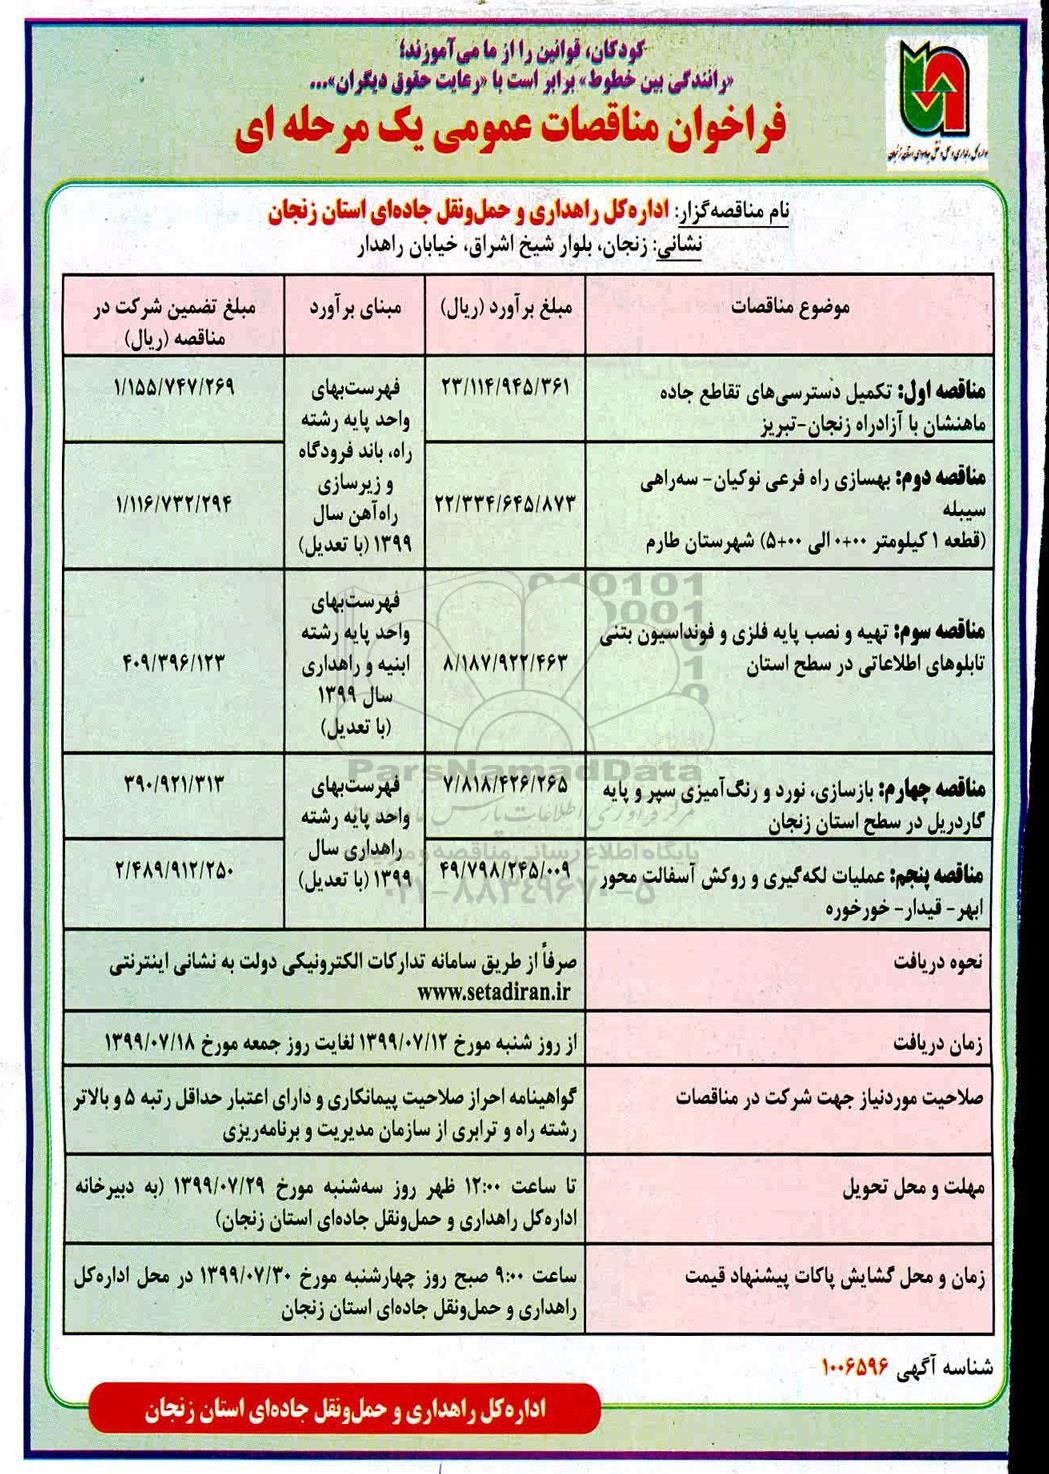 کودکان، قوانین را از ما می‌آموزند؛
«رانندگی بین خطوط» برابر است با «رعایت حقوق دیگران»...
فراخوان مناقصات عمومی یک مرحله ای
نام مناقصه‌گزار: اداره‌کل راهداری و حمل‌ونقل جاده‌ای استان زنجان
نشانی: زنجان، بلوار شیخ اشراق، خیابان راهدار
موضوع مناقصات
مبلغ برآورد (ریال)
مبنای برآورد
مبلغ تضمین شرکت در
مناقصه (ریال)
مناقصه اول: تکمیل دسترسی‌های تقاطع جاده
ماهنشان با آزادراه زنجان-تبریز
۲۳/۱۱۴/۹۴۵/۳۶۱
فهرست‌بهای
واحد پایه رشته
راه، باند فرودگاه
و زیرسازی
راه‌آهن سال
۱۳۹۹ (با تعدیل)
۱/۱۵۵/۷۴۷/۲۶۹
مناقصه دوم: بهسازی راه فرعی نوکیان- سه‌راهی
سیبله
(قطعه ۱ کیلومتر ۰۰+۰ الی ۰۰+۵) شهرستان طارم
۲۲/۳۳۴/۶۴۵/۸۷۳
۱/۱۱۶/۷۳۲/۲۹۴
مناقصه سوم: تهیه و نصب پایه فلزی و فونداسیون بتنی
تابلوهای اطلاعاتی در سطح استان
۸/۱۸۷/۹۲۲/۴۶۳
فهرست‌بهای
واحد پایه رشته
ابنیه و راهداری
سال ۱۳۹۹
(با تعدیل)
۴۰۹/۳۹۶/۱۲۳
مناقصه چهارم: بازسازی، نورد و رنگ‌آمیزی سپر و پایه
گاردریل در سطح استان زنجان
۷/۸۱۸/۴۲۶/۲۶۵
فهرست‌بهای
واحد پایه رشته
راهداری سال
۱۳۹۹ (با تعدیل)
۳۹۰/۹۲۱/۳۱۳
مناقصه پنجم: عملیات لکه‌گیری و روکش آسفالت محور
ابهر- قیدار- خورخوره
۴۹/۷۹۸/۲۴۵/۰۰۹
۲/۴۸۹/۹۱۲/۲۵۰
نحوه دریافت
صرفاً از طریق سامانه تدارکات الکترونیکی دولت به نشانی اینترنتی
www.setadiran.ir
زمان دریافت
از روز شنبه مورخ ۱۳۹۹/۰۷/۱۲ لغایت روز جمعه مورخ ۱۳۹۹/۰۷/۱۸
صلاحیت موردنیاز جهت شرکت در مناقصات
گواهینامه احراز صلاحیت پیمانکاری و دارای اعتبار حداقل رتبه ۵ و بالاتر
رشته راه و ترابری از سازمان مدیریت و برنامه‌ریزی
مهلت و محل تحویل
تا ساعت ۱۲:۰۰ ظهر روز سه‌شنبه مورخ ۱۳۹۹/۰۷/۲۹ (به دبیرخانه
اداره‌کل راهداری و حمل‌ونقل جاده‌ای استان زنجان)
زمان و محل گشایش پاکات پیشنهاد قیمت
ساعت ۹:۰۰ صبح روز چهارشنبه مورخ ۱۳۹۹/۰۷/۳۰ در محل اداره‌کل
راهداری و حمل‌ونقل جاده‌ای استان زنجان
شناسه آگهی ۱۰۰۶۵۹۶
اداره‌کل راهداری و حمل‌ونقل جاده‌ای استان زنجان
ParsNamadData
پایگاه اطلاع رسانی مناقصه و مزایده
۰۲۱-۸۸۳۴۹۶۷۰-۵